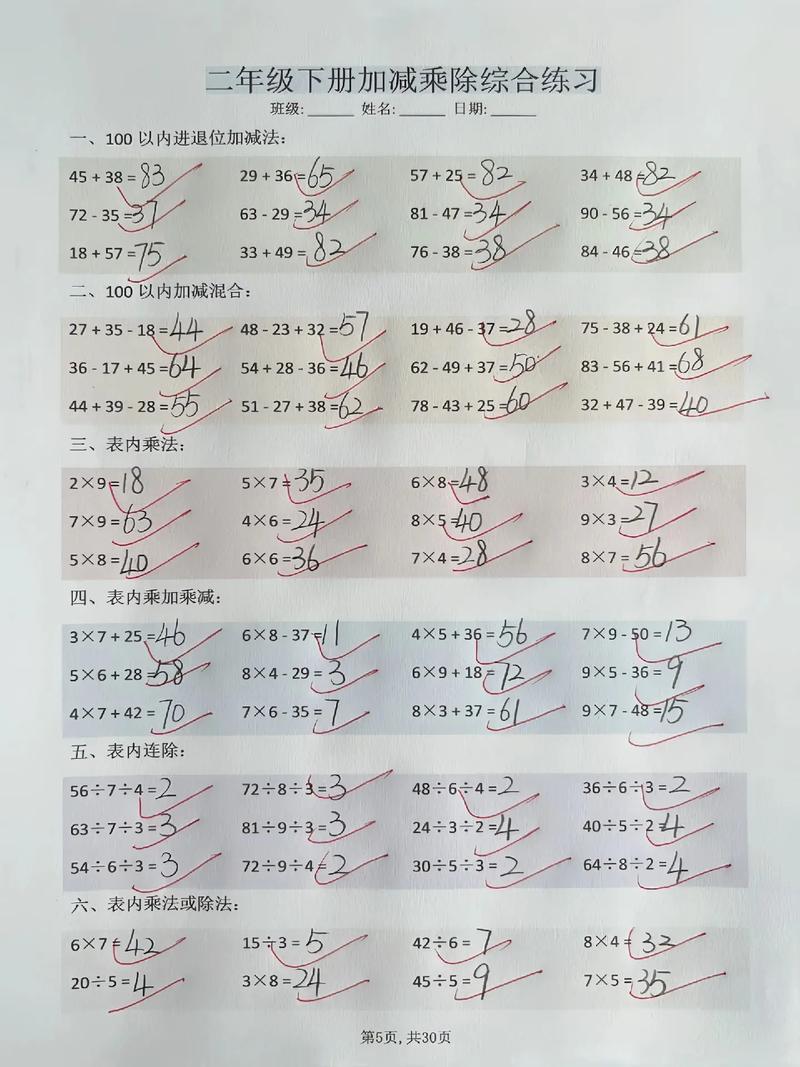 二年级下册加减乘除综合练习
班级: ______ 姓名: ______ 日期: ______
一、100 以内进退位加减法:
45 + 38 = 83 29 + 36 = 65 57 + 25 = 82 34 + 48 = 82
72 - 35 = 37 63 - 29 = 34 81 - 47 = 34 90 - 56 = 34
18 + 57 = 75 33 + 49 = 82 76 - 38 = 38 84 - 46 = 38
二、100 以内加减混合:
27 + 35 - 18 = 44 48 - 23 + 32 = 57 19 + 46 - 37 = 28 75 - 38 + 24 = 61
36 - 17 + 45 = 64 54 + 28 - 36 = 46 62 - 49 + 37 = 50 83 - 56 + 41 = 68
44 + 39 - 28 = 55 51 - 27 + 38 = 62 78 - 43 + 25 = 60 32 + 47 - 39 = 40
三、表内乘法:
2×9 = 18 5×7 = 35 6×8 = 48 3×4 = 12
7×9 = 63 4×6 = 24 8×5 = 40 9×3 = 27
5×8 = 40 6×6 = 36 7×4 = 28 8×7 = 56
四、表内乘加乘减:
3×7 + 25 = 46 6×8 - 37 = 11 4×5 + 36 = 56 7×9 - 50 = 13
5×6 + 28 = 58 8×4 - 29 = 3 6×9 + 18 = 72 9×5 - 36 = 9
4×7 + 42 = 70 7×6 - 35 = 7 8×3 + 37 = 61 9×7 - 48 = 15
五、表内连除:
56÷7÷4 = 2 72÷8÷3 = 3 48÷6÷4 = 2 36÷6÷3 = 2
63÷7÷3 = 3 81÷9÷3 = 3 24÷3÷2 = 4 40÷5÷2 = 4
54÷6÷3 = 3 72÷9÷4 = 2 30÷5÷3 = 2 64÷8÷2 = 4
六、表内乘法或除法:
6×7 = 42 15÷3 = 5 42÷6 = 7 8×4 = 32
20÷5 = 4 3×8 = 24 45÷5 = 9 7×5 = 35
第5页,共30页